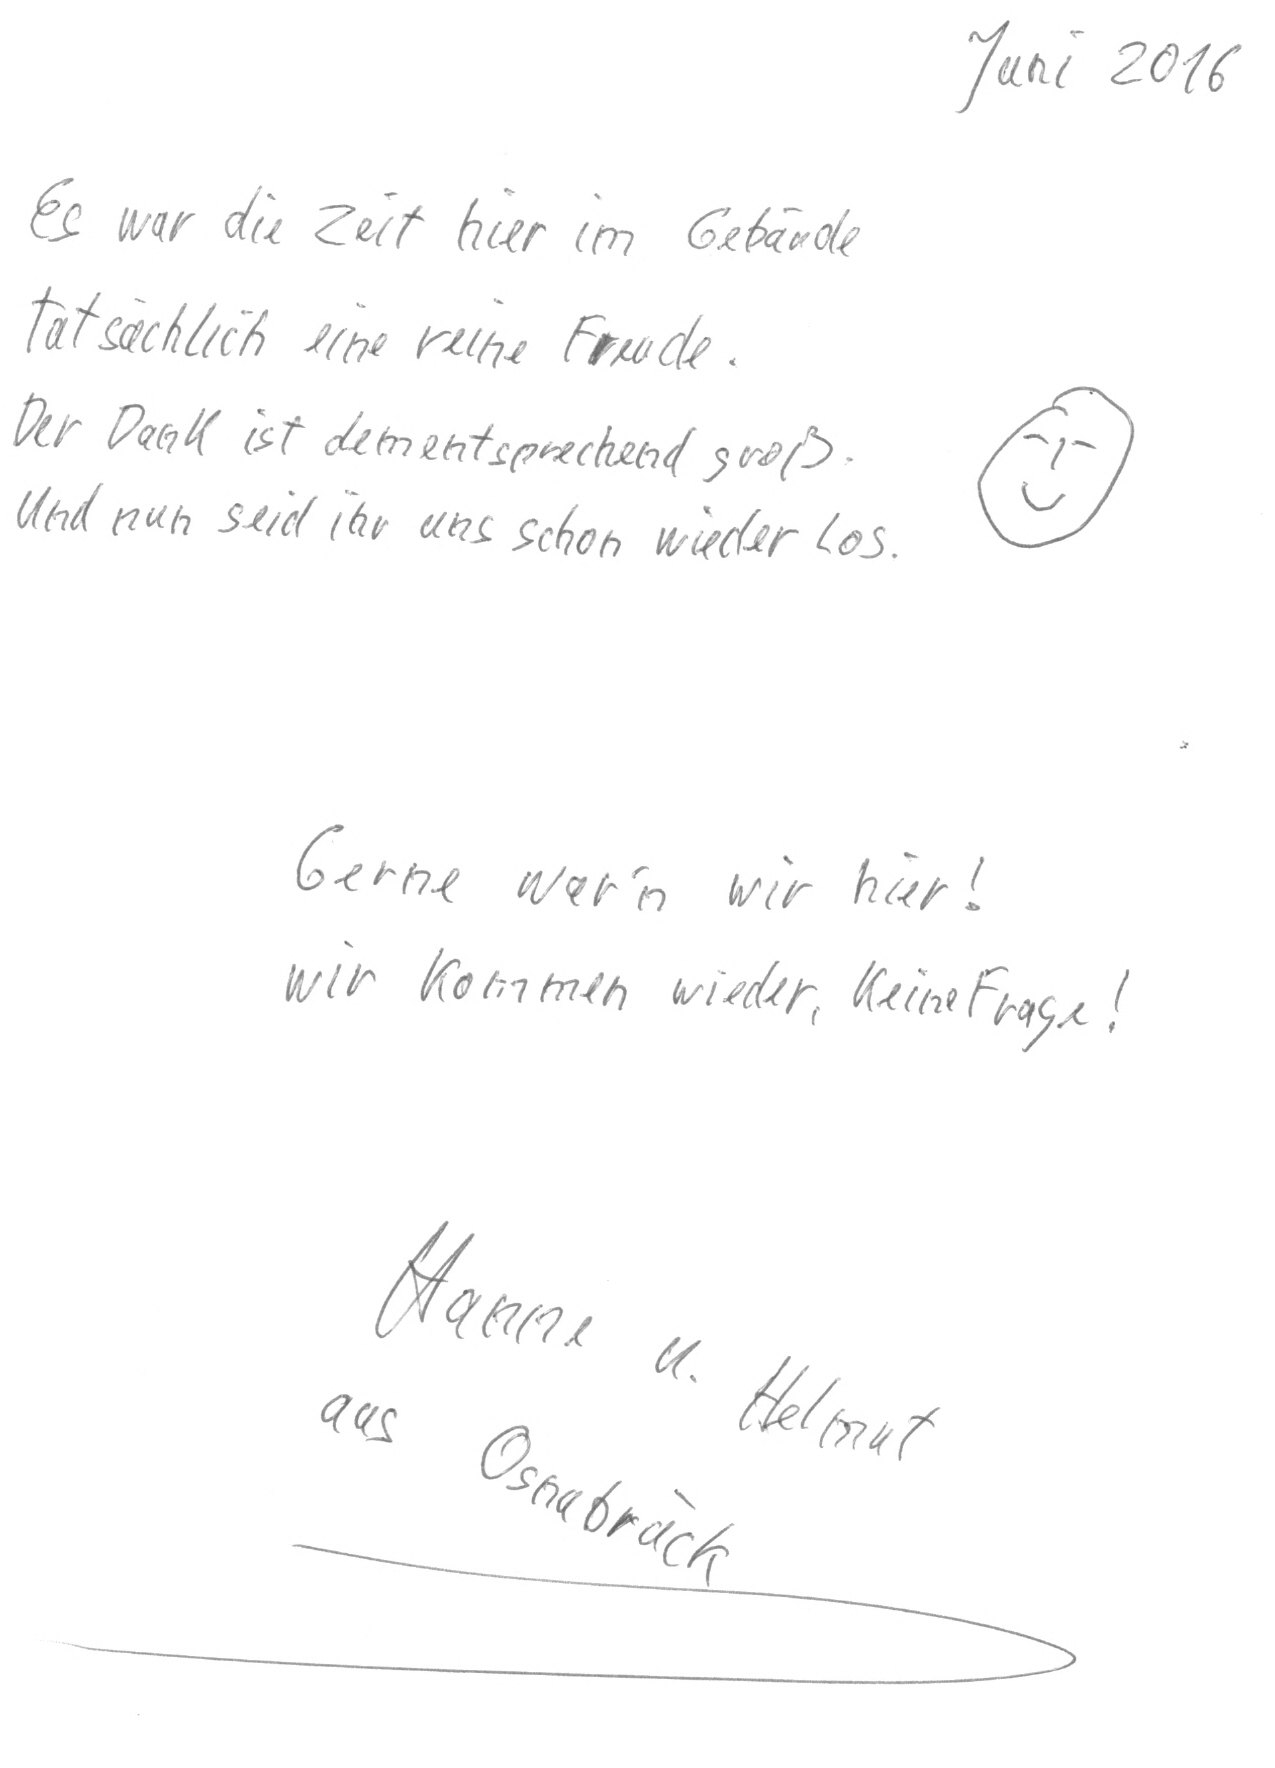 Juni 2016
Es war die Zeit hier im Gebäude
tatsächlich eine reine Freude.
Der Dank ist dementsprechend groß.
Und nun seid ihr uns schon wieder los.
Gerne war'n wir hier!
wir kommen wieder, keine Frage!
Hanne u. Helmut
aus Osnabrück